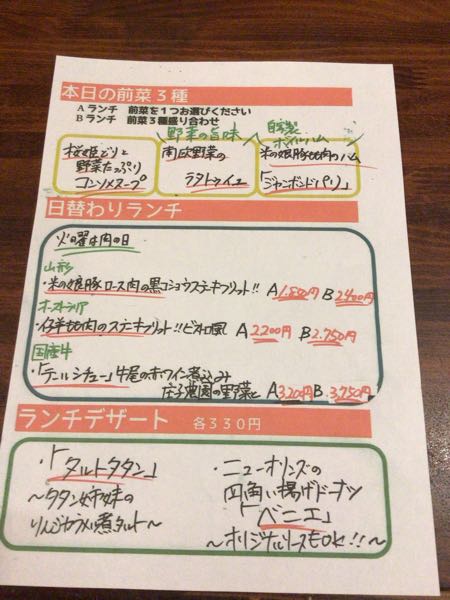 本日の前菜3種
Aランチ 前菜を1つお選びください
Bランチ 前菜3種盛り合わせ
野菜の旨味
自家製
ボイルハム
桜姫どりと
野菜たっぷり
コンソメスープ
南欧野菜の
ラタトゥイユ
米の娘豚もも肉のハム
「ジャンボンドパリ」
日替わりランチ
火曜は肉の日
山形
・米の娘豚ロース肉の黒コショウステーキフリット!! A1,800円 B2400円
オーストラリア
・仔羊もも肉のステーキフリット!!ビストロ風 A2200円 B2.750円
国産牛
・「テールシチュー」牛尾の赤ワイン煮込み
庄子農園の野菜と A3,200円 B3,750円
ランチデザート 各330円
・「タルトタタン」
～タタン姉妹の
りんごカラメル煮タルト～
・ニューオリンズの
四角い揚げドーナツ
「ベニエ」
～オリジナルソースもOK!!～